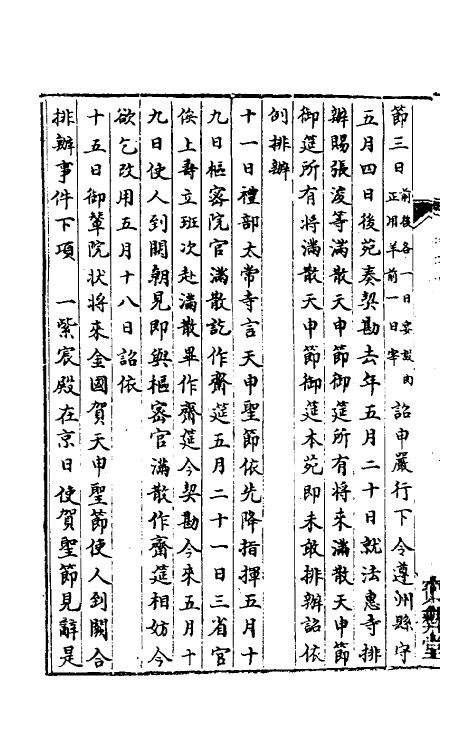 節三日前後各一日宴設肉正用羊前一日宰詔申嚴行下令遵洲縣守
五月四日後苑奏契勘去年五月二十日就法惠寺排
辦賜張浚等滿散天申節御筵所有將來滿散天申節
御筵所有將滿散天申節御筵本苑即未敢排辦詔依
例排辦
十一日禮部太常寺言天申聖節依先降指揮五月十
九日樞密院官滿散訖作齋筵五月二十一日三省官
俟上壽立班次赴滿散畢作齋筵今契勘今來五月十
九日使人到闕朝見即與樞密官滿散作齋筵相妨今
欲乞改用五月十八日詔依
十五日御輦院狀將來金國賀天申聖節使人到闕合
排辦事件下項　一紫宸殿在京日使賀聖節見辭是